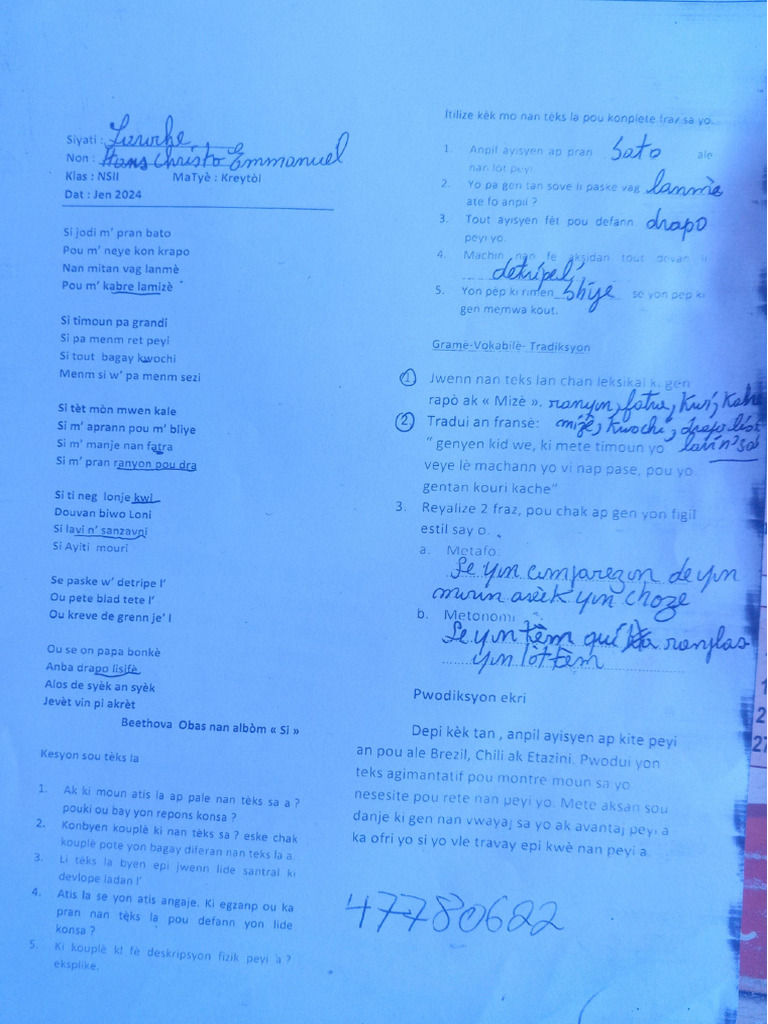 Siyati : Laroche
Non : Hans Christo Emmanuel
Klas : NSII MaTyè : Kreytòl
Dat : Jen 2024
Si jodi m' pran bato
Pou m' neye kon krapo
Nan mitan vag lanmè
Pou m' kabre lamizè
Si timoun pa grandi
Si pa menm ret peyi
Si tout bagay kwochi
Menm si w' pa menm sezi
Si tèt mòn mwen kale
Si m' aprann pou m' bliye
Si m' manje nan fatra
Si m' pran ranyon pou dra
Si ti neg lonje kwi
Douvan biwo Loni
Si lavi n' sanzavni
Si Ayiti mouri
Se paske w' detripe l'
Ou pete blad tete l'
Ou kreve de grenn je' l
Ou se on papa bonkè
Anba drapo lisifè
Alos de syèk an syèk
Jevèt vin pi akrèt
Beethova Obas nan albòm « Si »
Kesyon sou tèks la
1. Ak ki moun atis la ap pale nan tèks sa a ?
pouki ou bay yon repons konsa ?
2. Konbyen kouplè ki nan tèks sa ? eske chak
kouplè pote yon bagay diferan nan teks la a.
3. Li tèks la byen epi jwenn lide santral ki
devlope ladan l'
4. Atis la se yon atis angaje. Ki egzanp ou ka
pran nan tèks la pou defann yon lide
konsa ?
5. Ki kouplè ki fè deskripsyon fizik peyi a ?
eksplike.
Itilize kèk mo nan tèks la pou konplete fraz sa yo.
1. Anpil ayisyen ap pran bato ale
nan lòt peyi
2. Yo pa gen tan sove li paske vag lanmè
ate fo anpil ?
3. Tout ayisyen fèt pou defann drapo
peyi yo.
4. Machin nan fe aksidan tout devan li
detripel'
5. Yon pèp ki rimen bliye se yon pep ki
gen memwa kout.
Gramè-Vokabilè- Tradiksyon
1 Jwenn nan teks lan chan leksikal ki gen
rapò ak « Mizè ». ranyon, fatra, Kwi, Kabre
2. Tradui an fransè: mizè, kwochi, drapo lisi
" genyen kid we, ki mete timoun yo lavi n' sa
veye lè machann yo vi nap pase, pou yo
gentan kouri kache"
3. Reyalize 2 fraz, pou chak ap gen yon figil
estil say o.
a. Metafò.
Se yon comparezon de yon
moun avèk yon choze
b. Metonomi
Se yon tèm qui ranplas
yon lòt tèm
Pwodiksyon ekri
Depi kèk tan , anpil ayisyen ap kite peyi
an pou ale Brezil, Chili ak Etazini. Pwodui yon
teks agimantatif pou montre moun sa yo
nesesite pou rete nan peyi yo. Mete aksan sou
danje ki gen nan vwayaj sa yo ak avantaj peyi a
ka ofri yo si yo vle travay epi kwè nan peyi a.
47780622